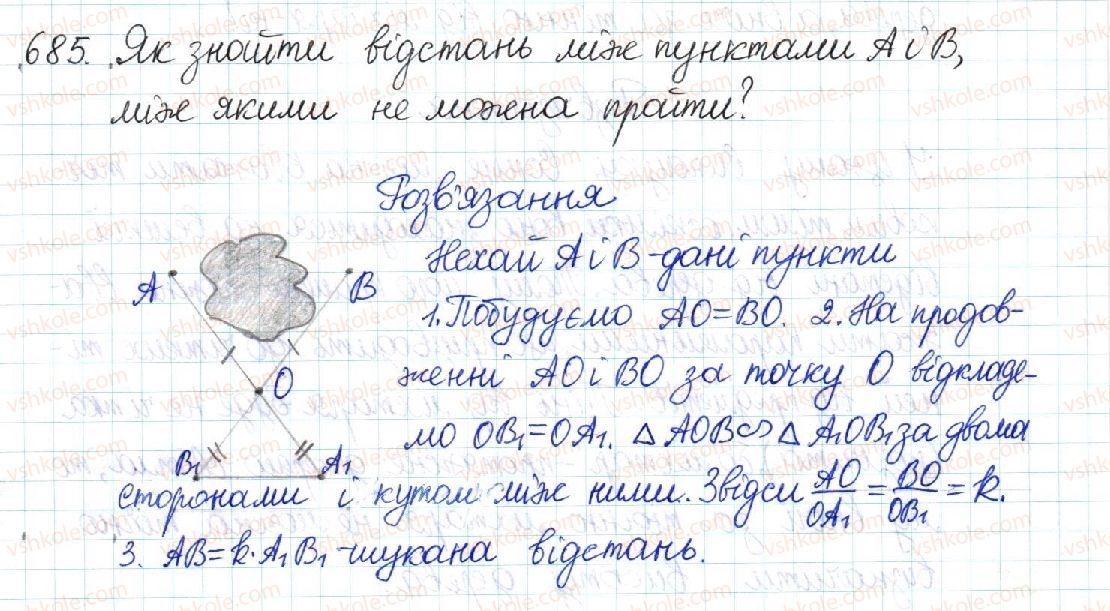 685. Як знайти відстань між пунктами A і B,
між якими не можна пройти?
Розв'язання
A
B
O
B₁
A₁
Нехай A і B - дані пункти
1. Побудуємо AO = BO. 2. На продов-
женні AO і BO за точку O відкладе-
мо OB₁ = OA₁. △ AOB ∽ △ A₁OB₁ за двома
сторонами і кутом між ними. Звідси AO/OA₁ = BO/OB₁ = k.
3. AB = k · A₁B₁ - шукана відстань.
vshkole.com